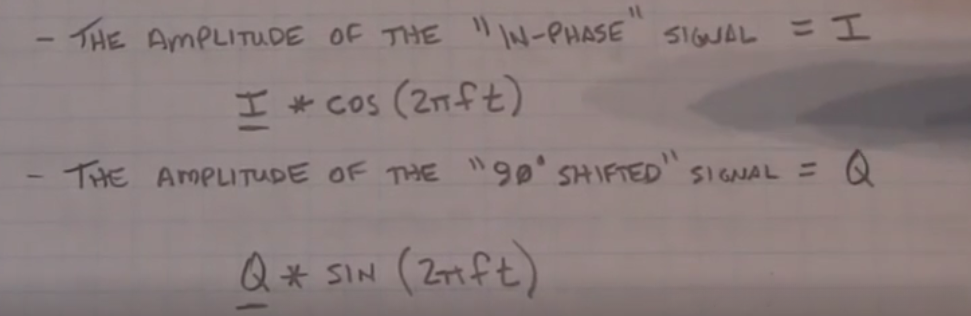 - THE AMPLITUDE OF THE "IN-PHASE" SIGNAL = I
I * cos (2πft)
- THE AMPLITUDE OF THE "90° SHIFTED" SIGNAL = Q
Q * SIN (2πft)